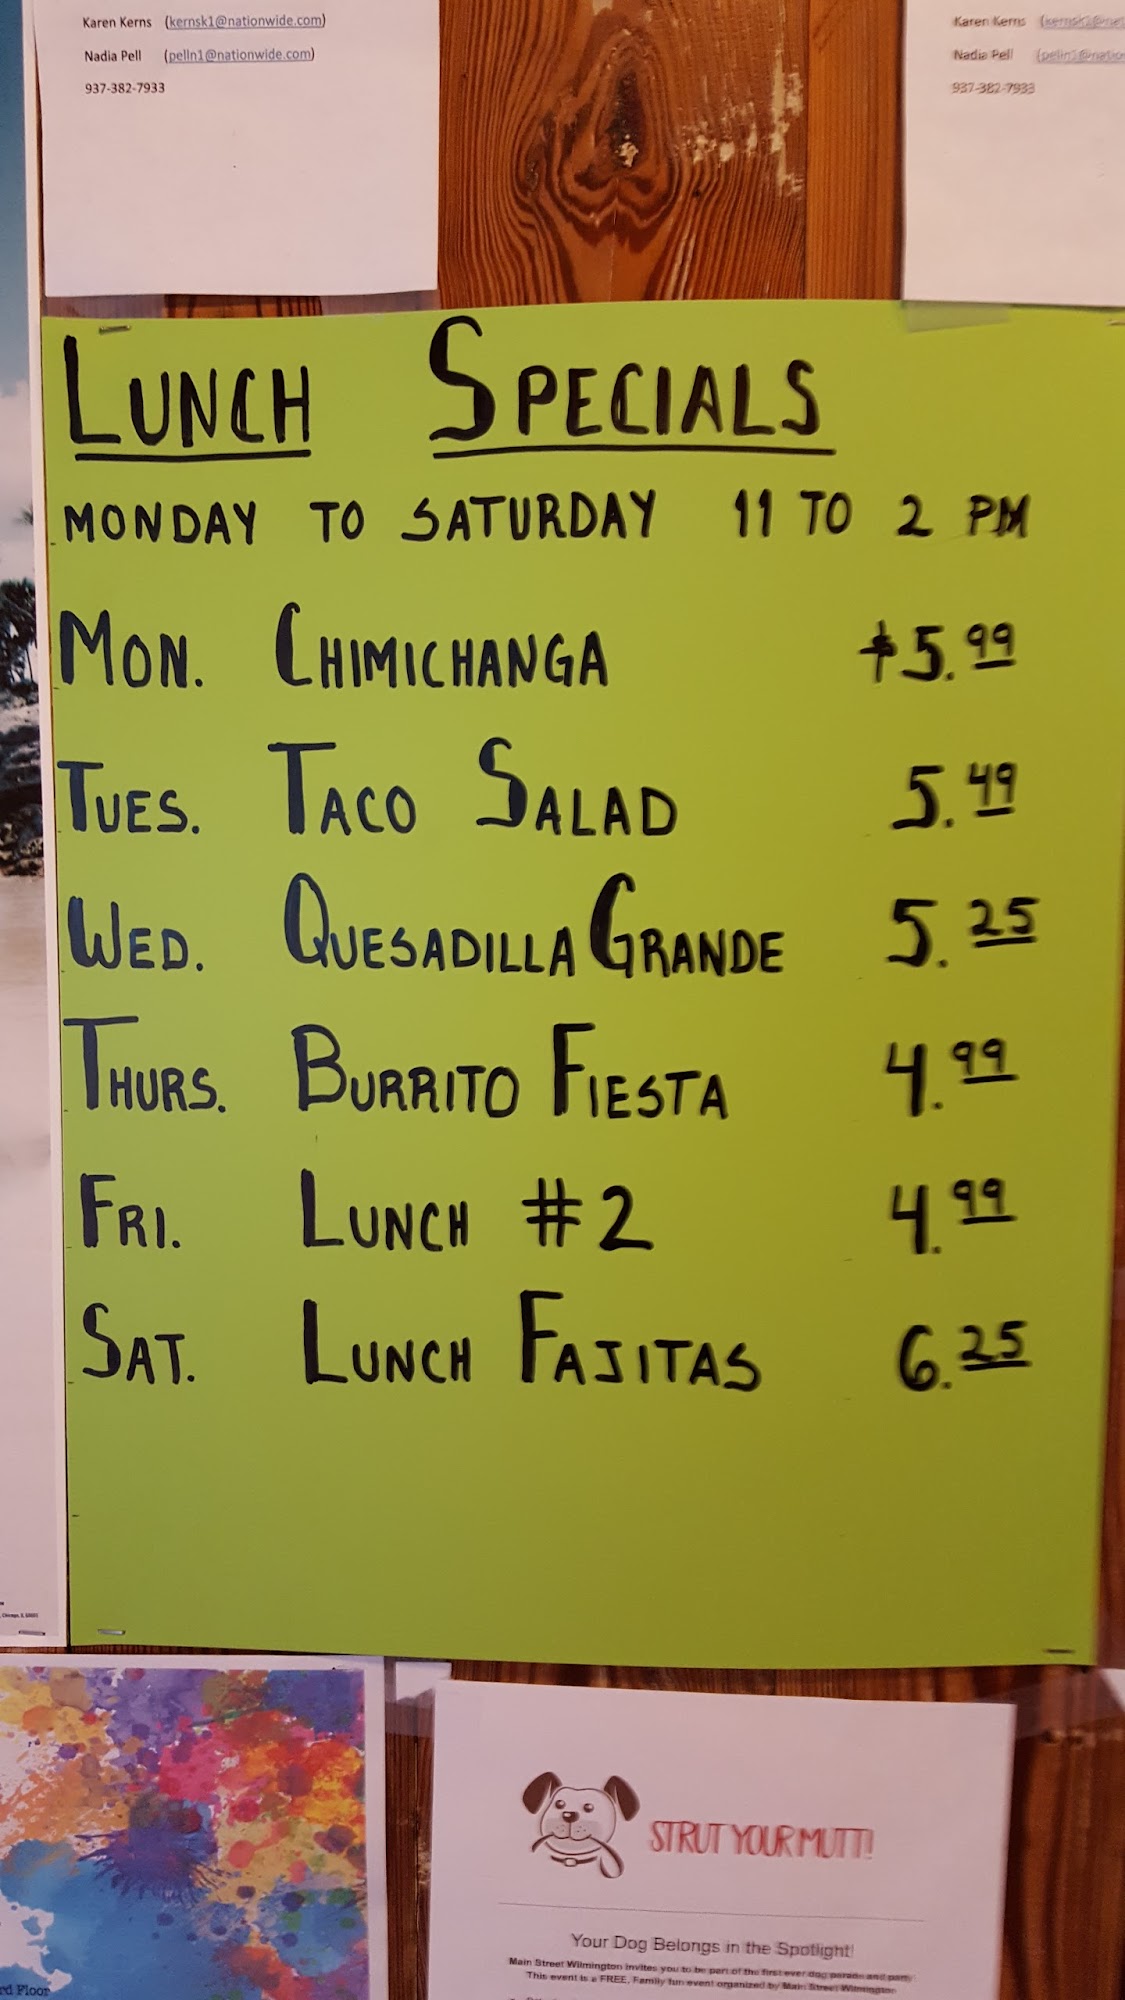 Karen Kerns (kernsk1@nationwide.com)
Nadia Pell (pelln1@nationwide.com)
937-382-7933
Karen Kerns
Nadia Pell
937-382-7933
LUNCH SPECIALS
MONDAY TO SATURDAY 11 TO 2 PM
MON. CHIMICHANGA $5.99
TUES. TACO SALAD 5.49
WED. QUESADILLA GRANDE 5.25
THURS. BURRITO FIESTA 4.99
FRI. LUNCH #2 4.99
SAT. LUNCH FAJITAS 6.25
STRUT YOUR MUTT!
Your Dog Belongs in the Spotlight!
Main Street Wilmington invites you to be part of the first ever dog parade and party
This event is a FREE, Family fun event organized by Main Street Wilmington
Floor